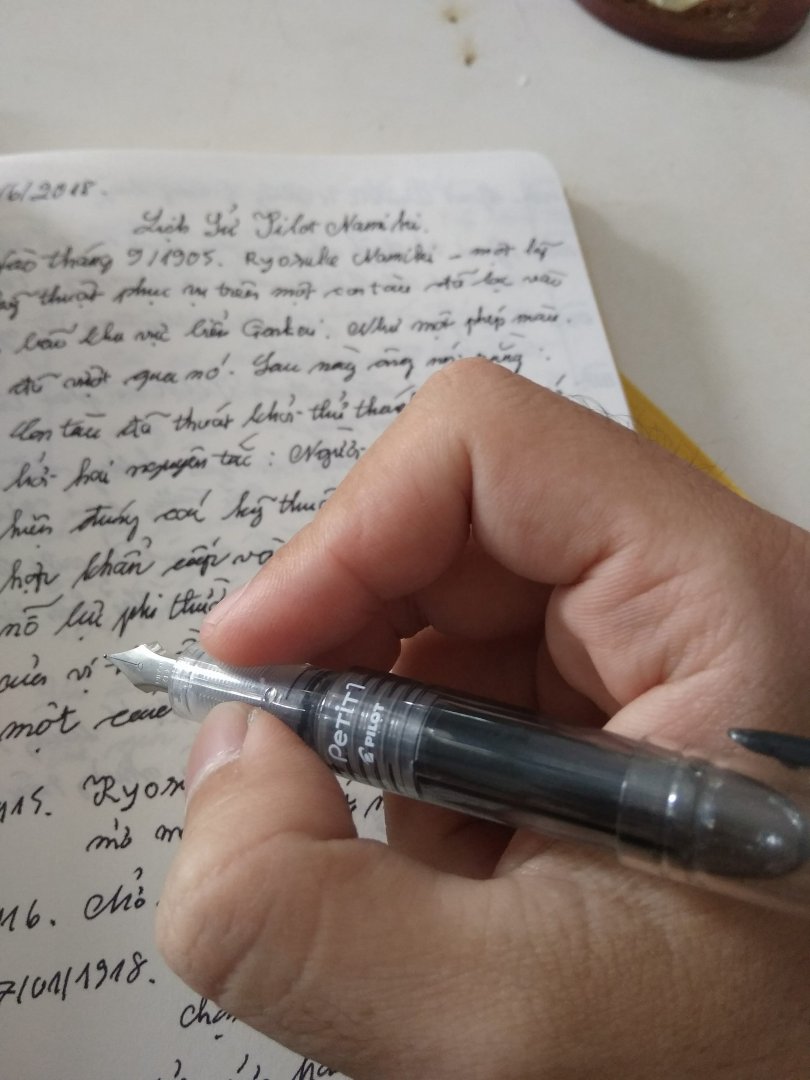 /6/2018.
Lịch Sử Pilot Namiki.
Vào tháng 9/1905. Ryosuke Namiki - một kỹ
thuật phục vụ trên một con tàu đã lọc vào
bão khu vực biển Genkai. Như một phép màu.
đã vượt qua nó. Sau này ông nói rằng :
Con tàu đã thoát khỏi thử thá
bởi hai nguyên tắc : Người
hiện đúng cái kỹ thu
hợp khẩn cấp và
nỗ lực phi thườ
của vị
một cou
915. Ryos
mở m
16. chỏ
7/01/1918.
chạ
Petit1
PILOT